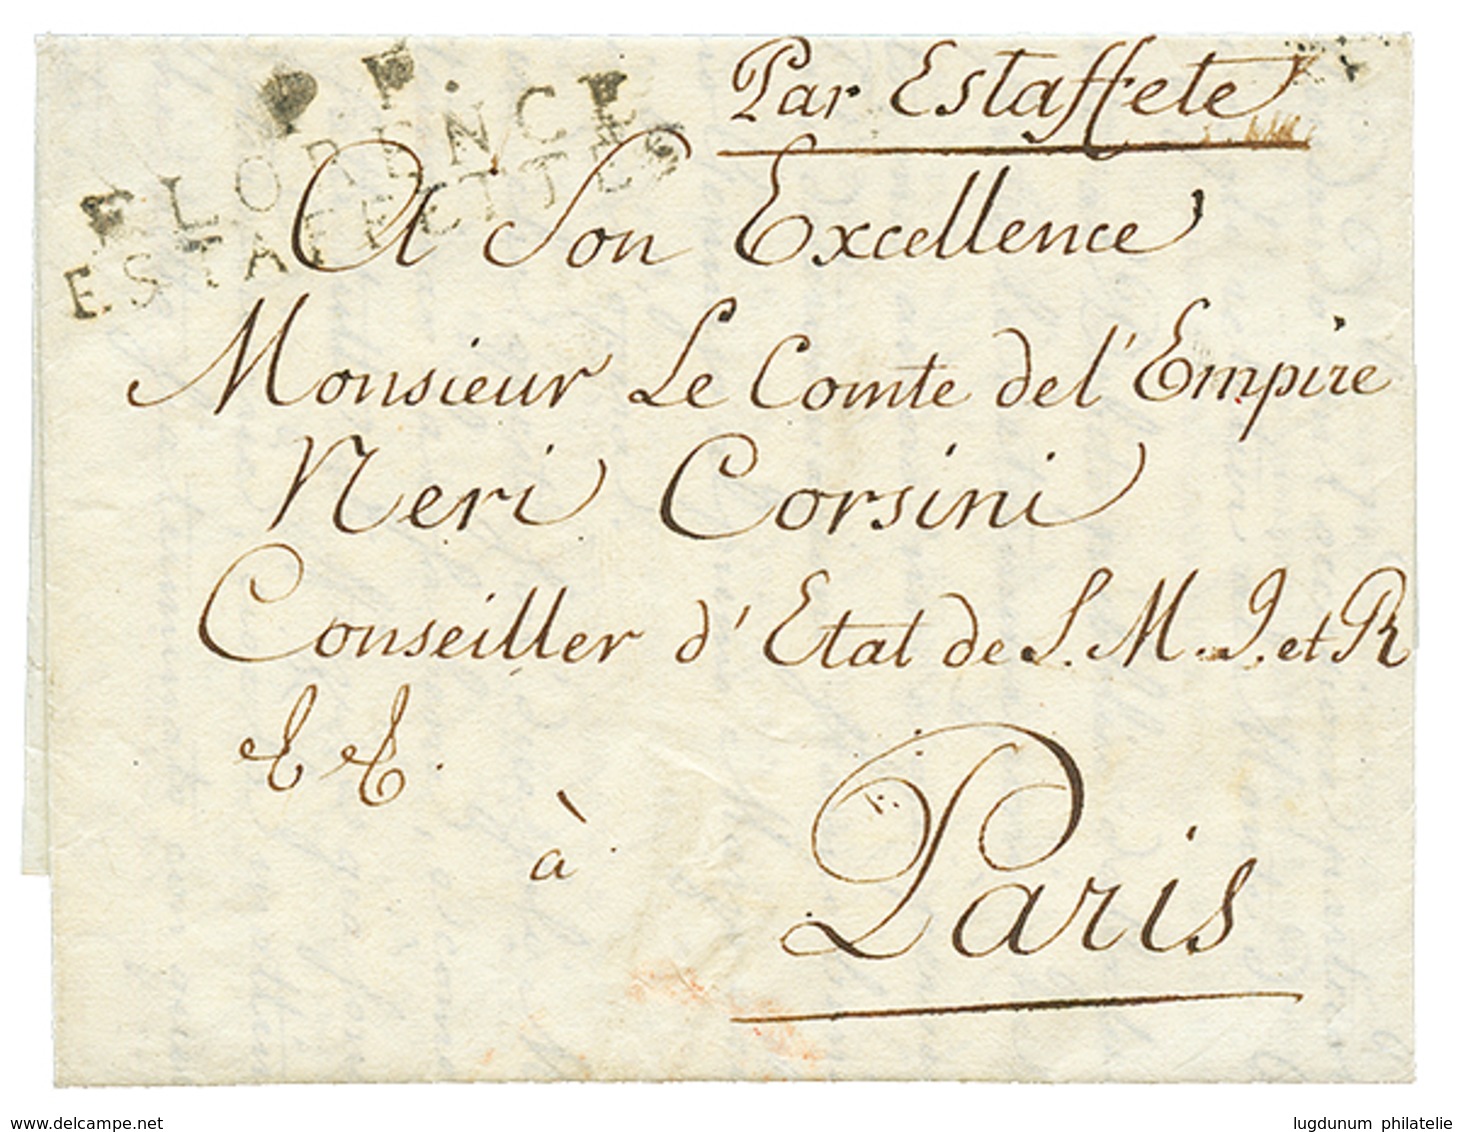 P. P.
FLORENCE
ESTAFFETTES
Par Estaffete
A Son Excellence
Monsieur Le Comte de l'Empire
Neri Corsini
Conseiller d'Etat de S. M. J. et R
& &.
à
Paris
www.delcampe.net
lugdunum philatelie